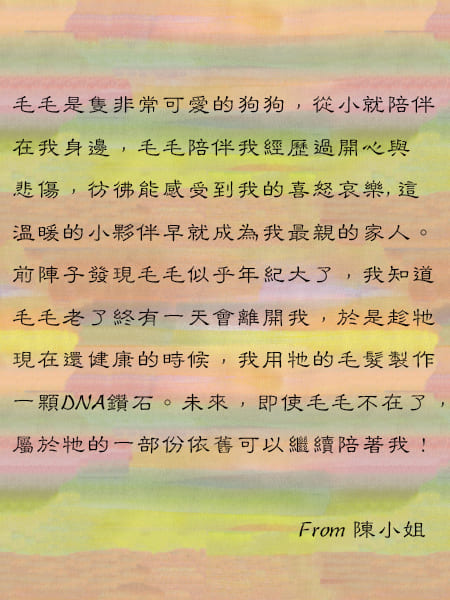 毛毛是隻非常可愛的狗狗，從小就陪伴
在我身邊，毛毛陪伴我經歷過開心與
悲傷，彷彿能感受到我的喜怒哀樂，這
溫暖的小夥伴早就成為我最親的家人。
前陣子發現毛毛似乎年紀大了，我知道
毛毛老了終有一天會離開我，於是趁牠
現在還健康的時候，我用牠的毛髮製作
一顆DNA鑽石。未來，即使毛毛不在了，
屬於牠的一部份依舊可以繼續陪著我！
From 陳小姐